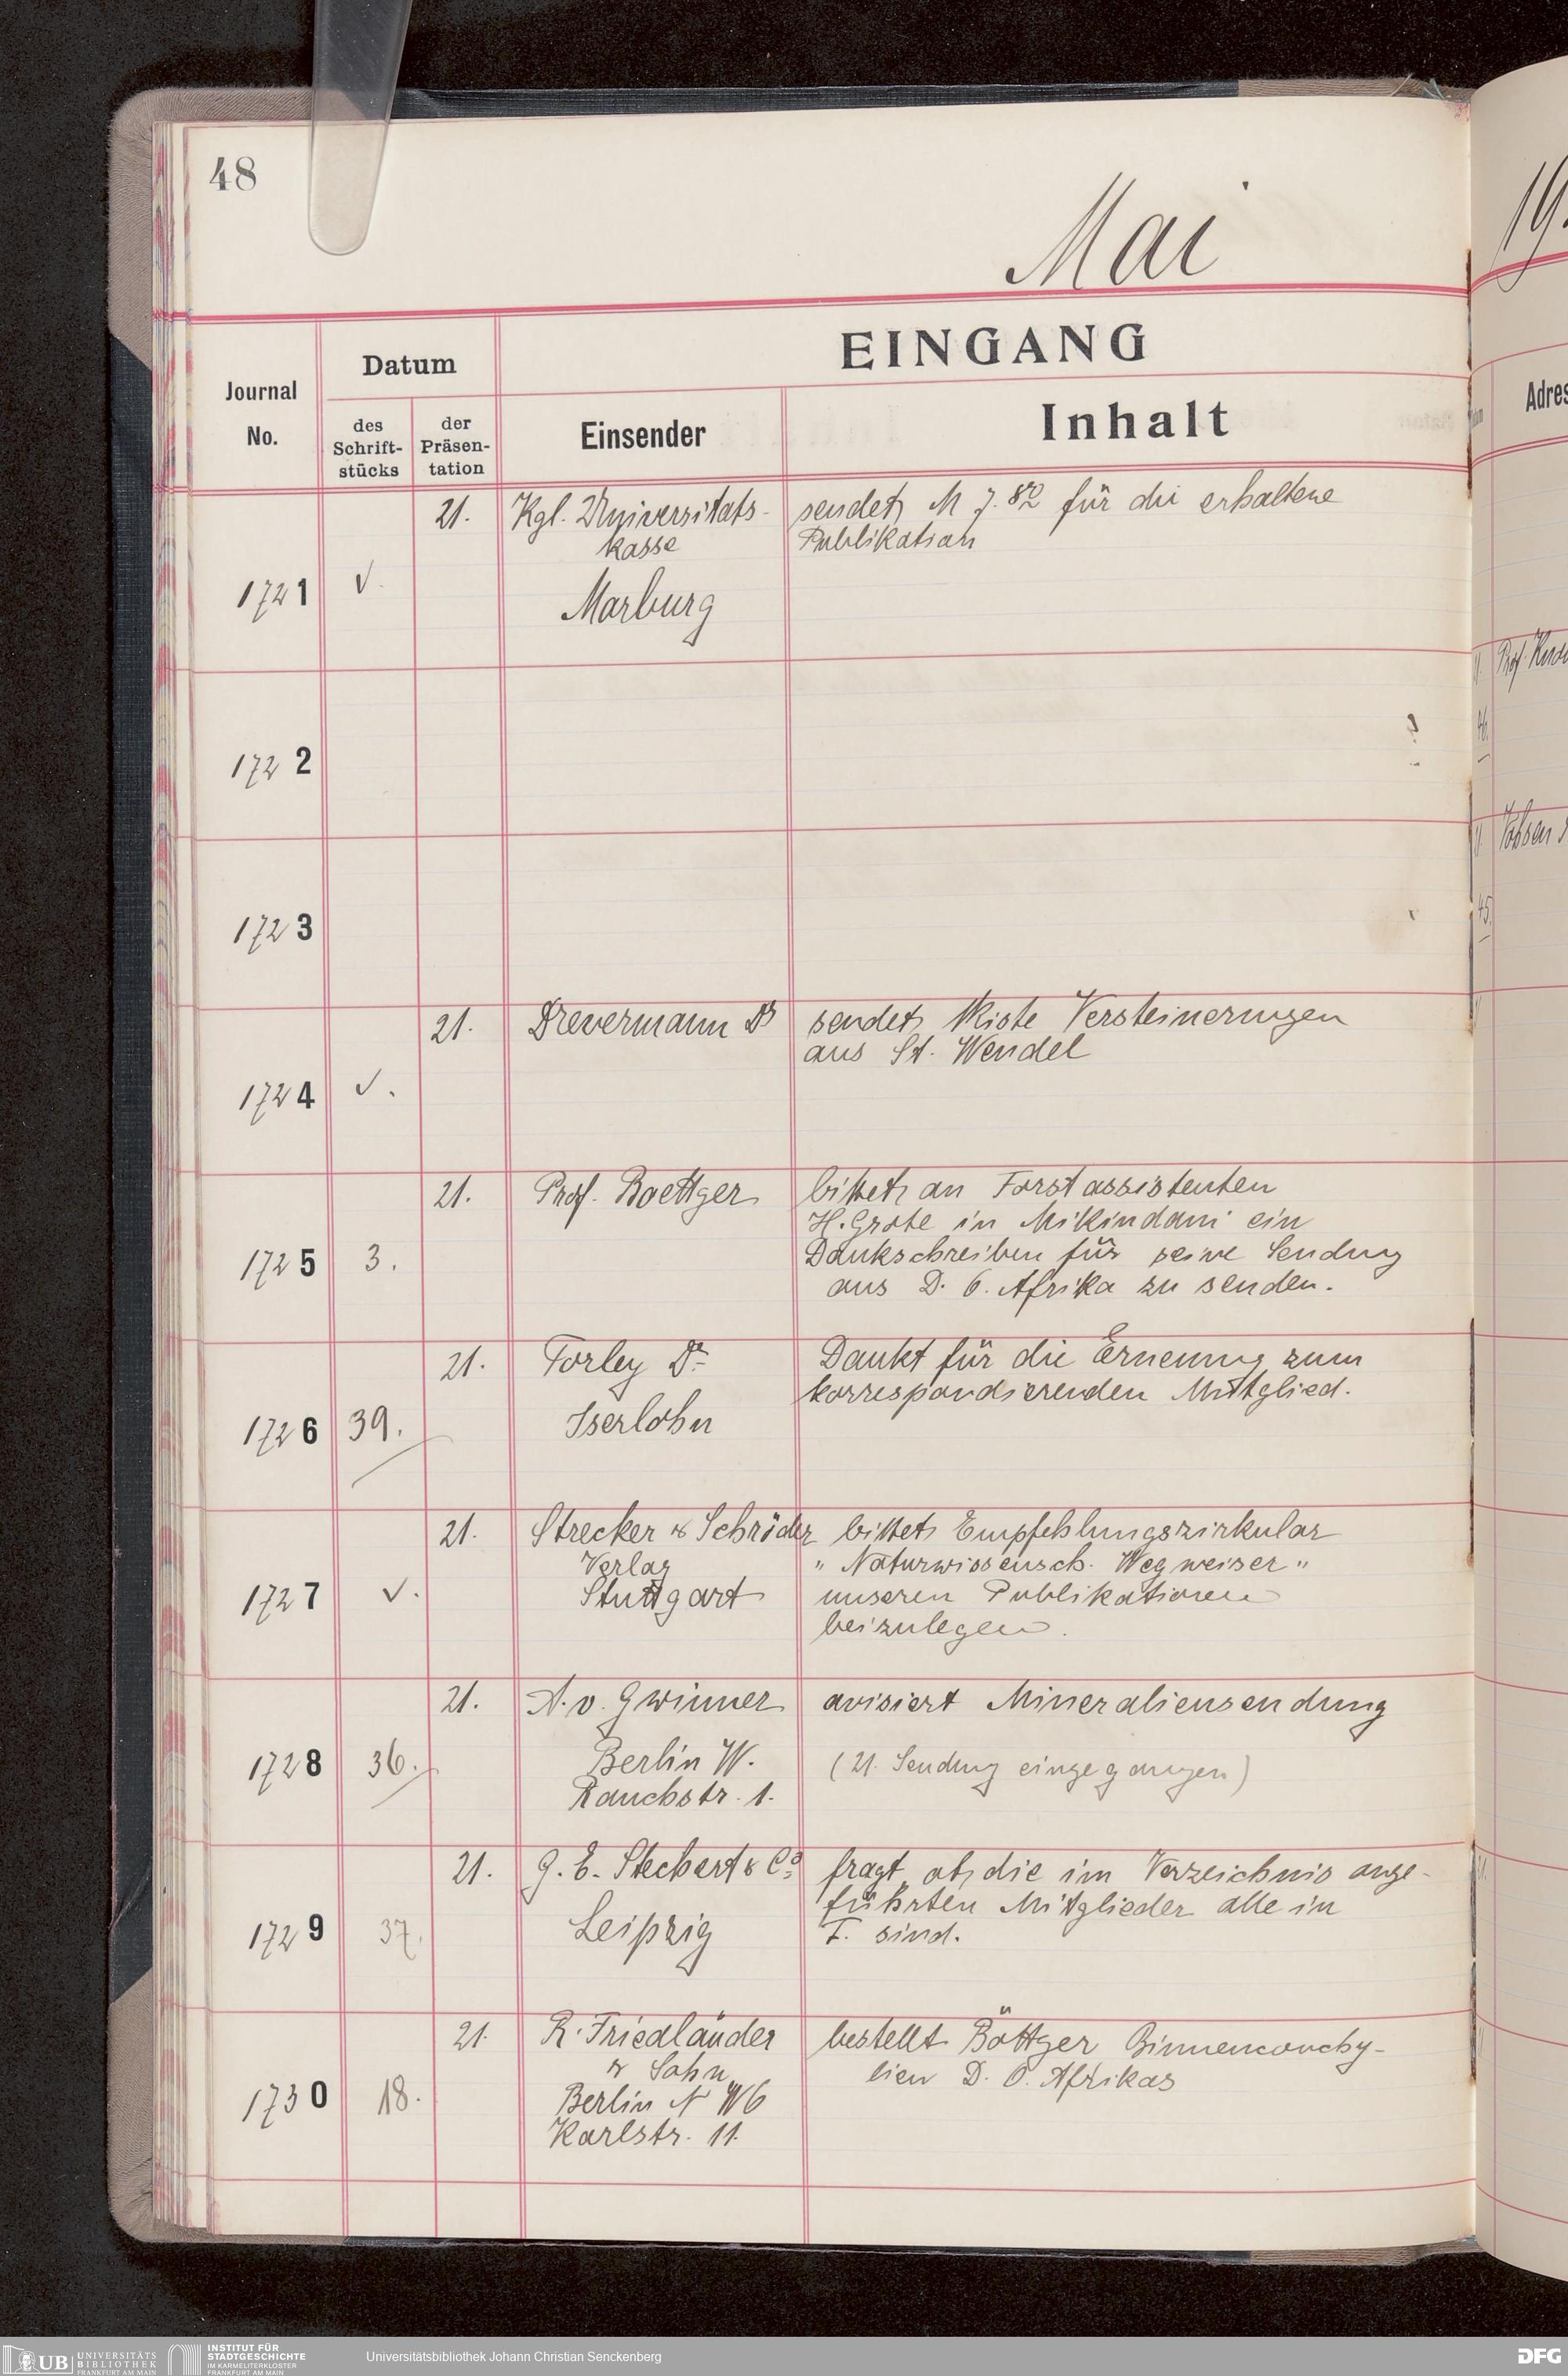 48
Mai
19
EINGANG
Journal
No.
Datum
des
Schrift-
stücks
der
Präsen-
tation
Einsender
Inhalt
Adres
1721
√.
21.
Kgl. Universitats-
kasse
Marburg
sendet M 7.80 für die erhaltene
Publikation
1722
1723
1724
√.
21.
Drevermann Dr
sendet 1 Kiste Versteinerungen
aus St. Wendel
1725
3.
21.
Prof. Boettger
bittet an Forstassistenten
H. Grote in Mikindani ein
Dankschreiben für seine Sendung
aus D. O. Afrika zu senden.
1726
39.
21.
Torley Dr
Iserlohn
Dankt für die Ernennung zum
korrespondierenden Mitglied.
1727
√.
21.
Strecker & Schröder
Verlag
Stuttgart
bittet Empfehlungszirkular
" Naturwissensch. Wegweiser "
unseren Publikationen
beizulegen.
1728
36.
21.
A. v. Gwinner
Berlin W.
Rauchstr. 1.
avisiert Mineraliensendung
(21. Sendung eingegangen)
1729
37.
21.
G. E. Stechert & Co
Leipzig
fragt ob die im Verzeichnis ange-
führten Mitglieder alle in
F. sind.
1730
18.
21.
R. Friedländer
& Sohn
Berlin N W 6
Karlstr. 11.
bestellt Böttger Binnenconchy-
lien D. O. Afrikas
UB UNIVERSITÄTS
BIBLIOTHEK
FRANKFURT AM MAIN
INSTITUT FÜR
STADTGESCHICHTE
IM KARMELITERKLOSTER
FRANKFURT AM MAIN
Universitätsbibliothek Johann Christian Senckenberg
DFG